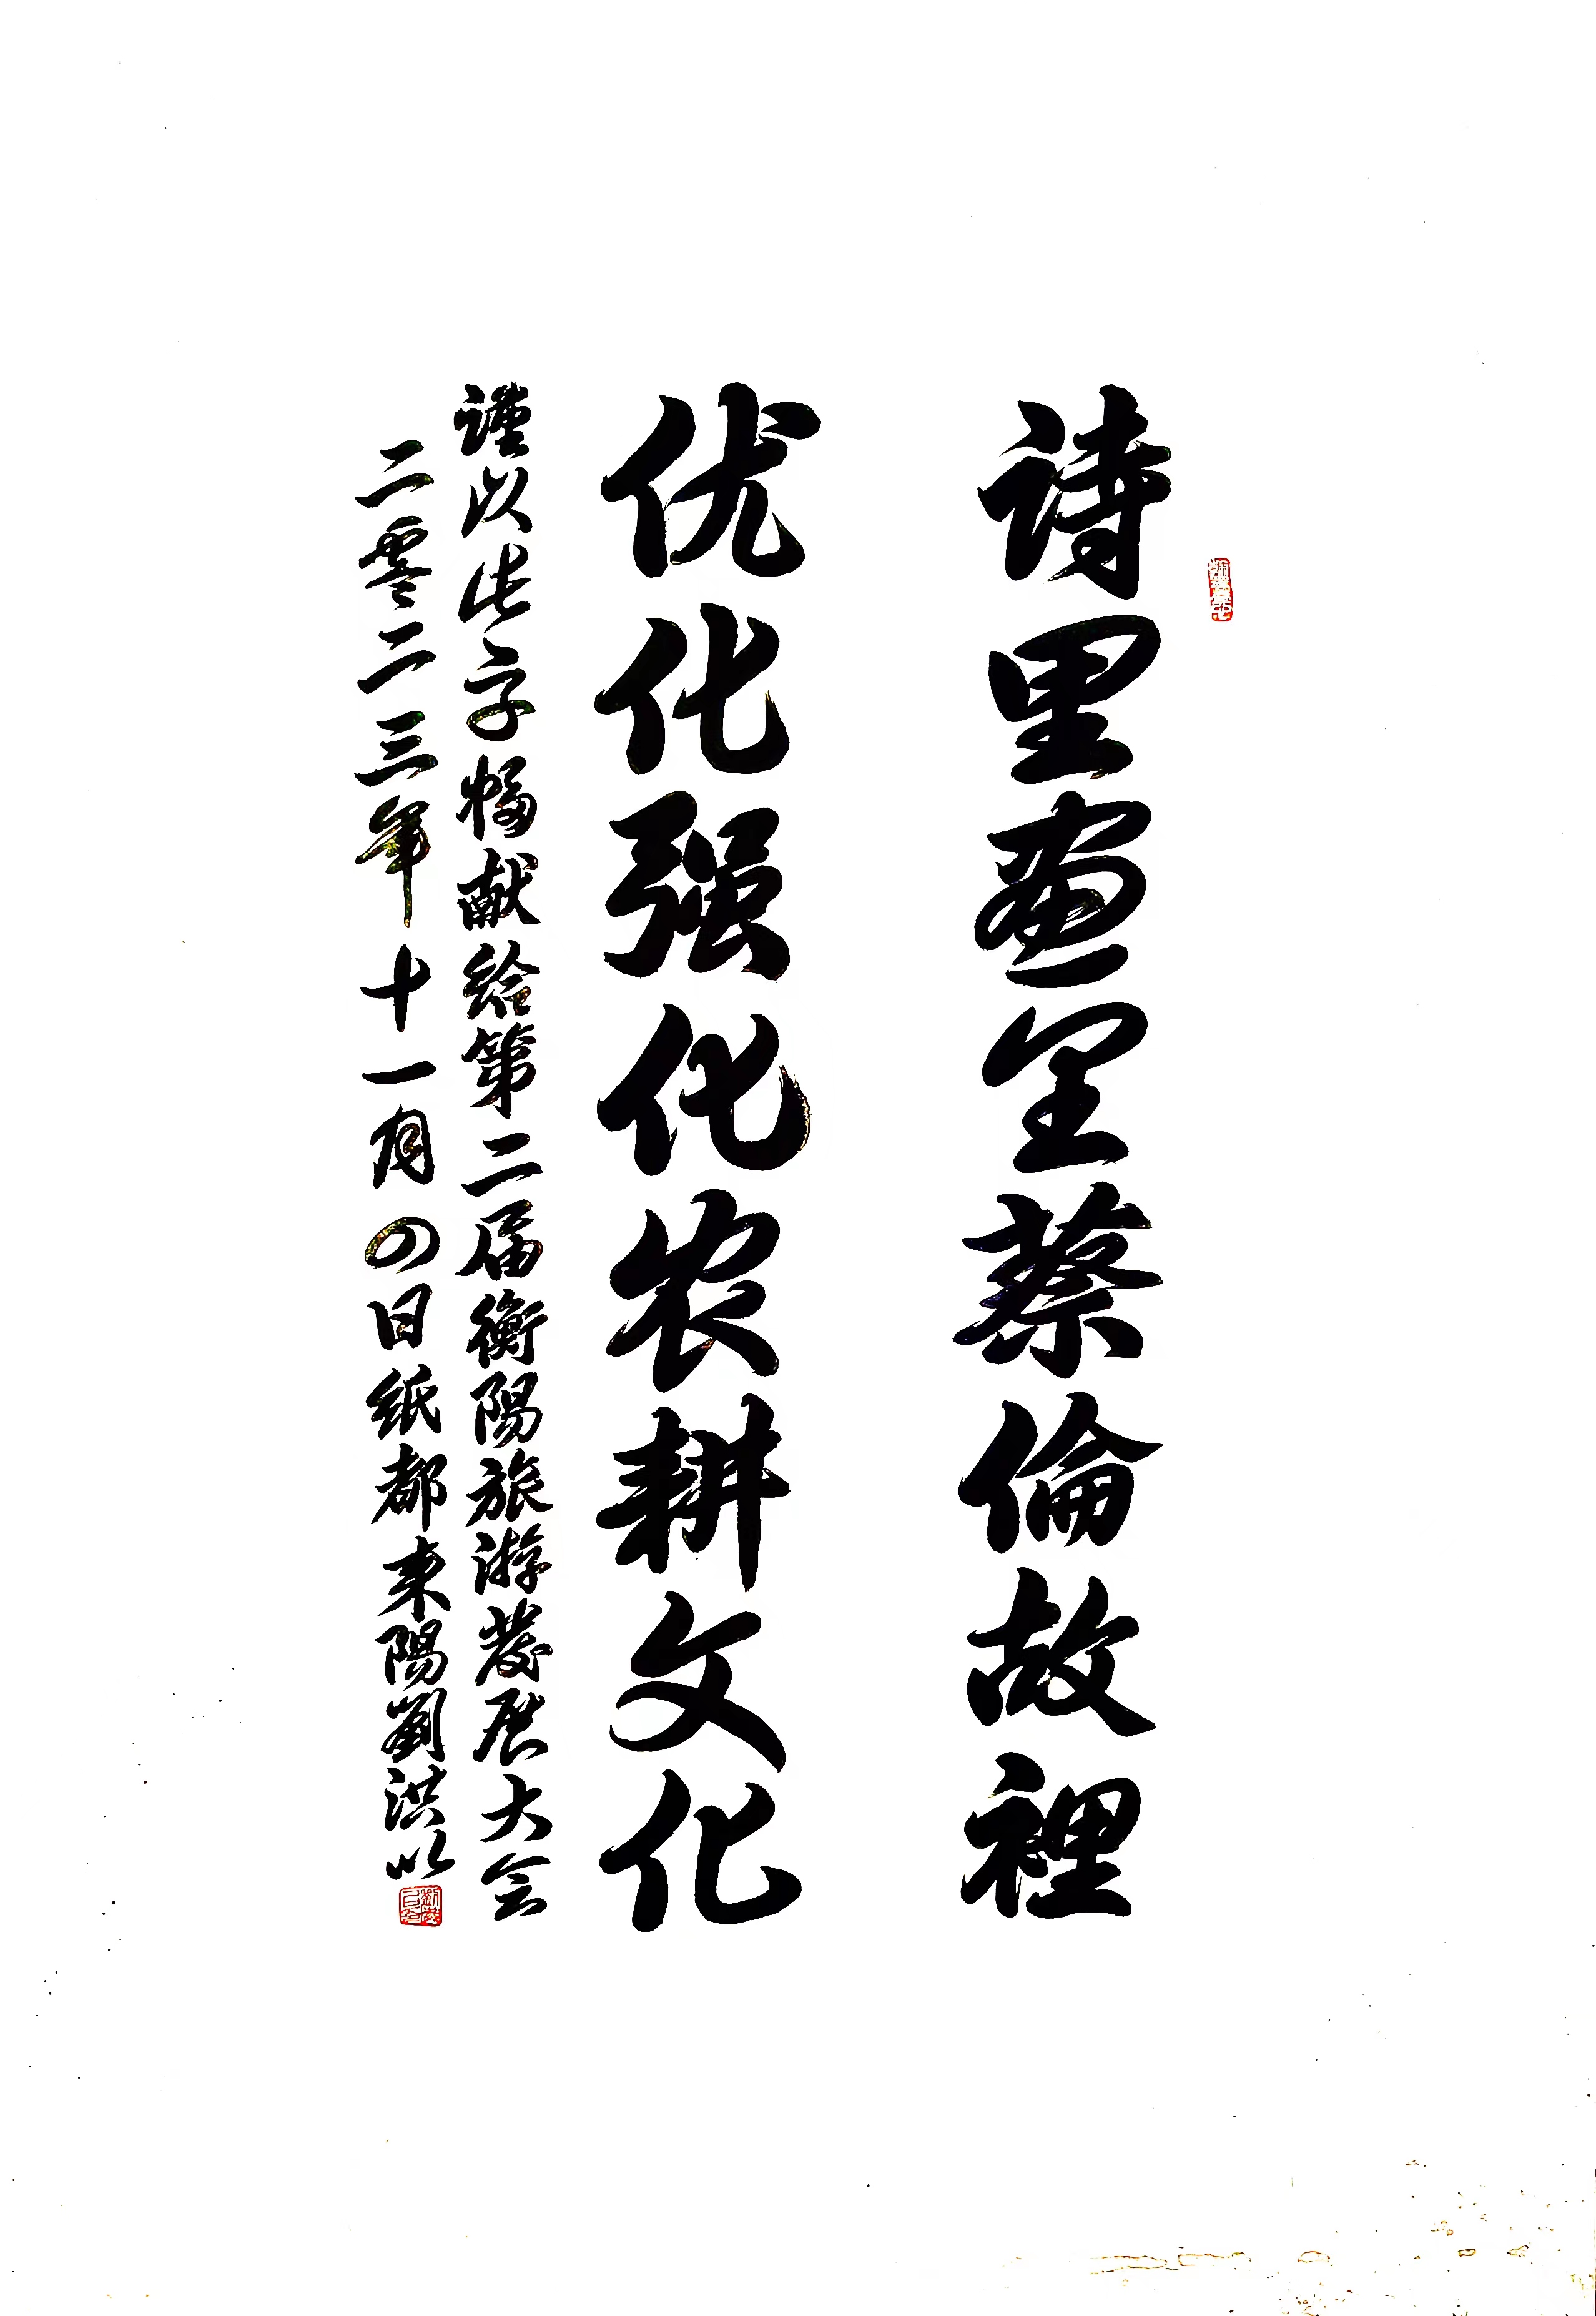 詩里画里蔡倫故裡
优化强化农耕文化
谨以此字幅献给第二届衡陽旅游發展大会
二零二三年十一月四日纸都耒陽劉洪以